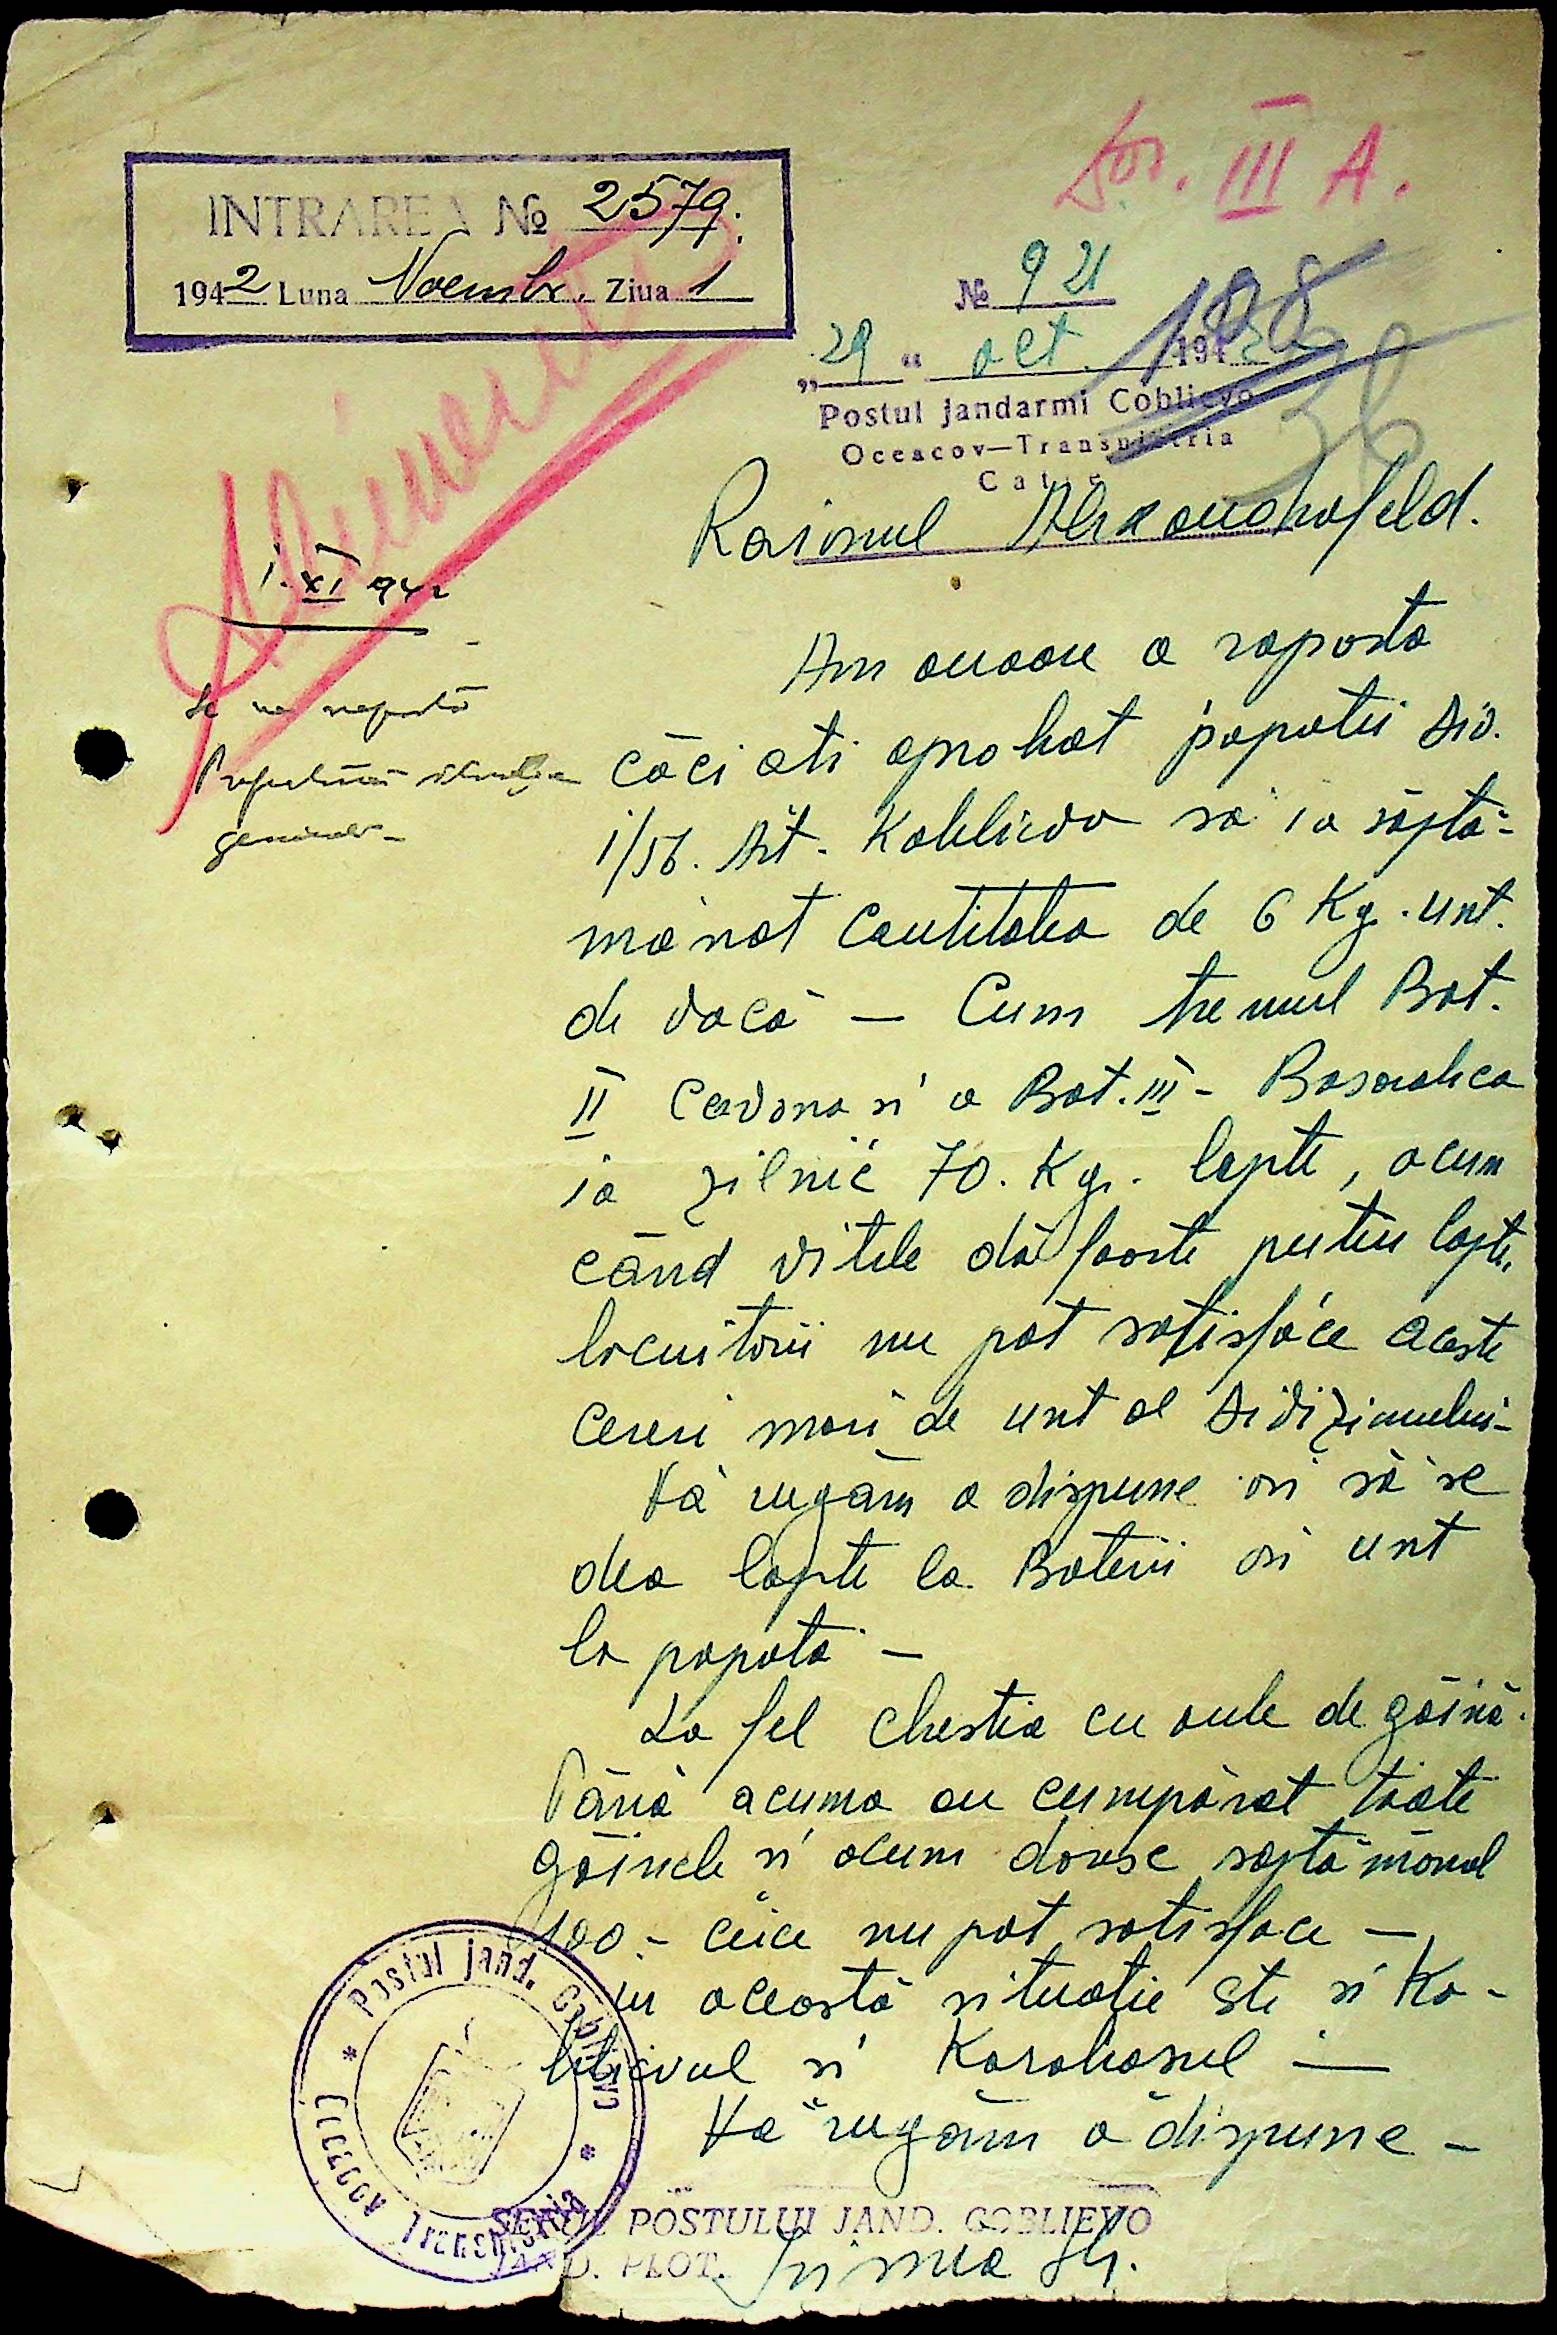 Dos. III A.
INTRAREA № 2579.
1942 Luna Noembr. Ziua 1
№ 921
„29“ oct. 1942
Postul jandarmi Coblievo
Oceacov—Transnistria
Catre
198
36
Raionul Alexandrofeld.
Alimente
1. XI 942
Se va raporta
Prefecturii situația
generală
Am onoare a raporta
căci ati aprobat popotii Div.
1/56. Art. Kobliewo să ia săptă-
mânat Cantitatea de 6 Kg. unt.
de vacă — Cum trenul Bat.
II si a Bat. III -
ia zilnic 70. Kg. lapte, acum
când vitele dă foarte putin lapte,
locuitorii nu pot satisface aceste
cereri mari de unt al Divizionului-
Vă rugăm a dispune ori să se
dea lapte la Baterii ori unt
la popota —
La fel chestia cu oule de găină.
Până acuma au cumpărat toate
găinele si acum douse saptămânal
100 - ceice nu pot satisface —
in aceastā situatie este si Ko-
blievul si Karabasul —
Vă rugăm a dispune —
SEFUL POSTULUI JAND. COBLIEVO
JAND. PLOT.
Gh.
* Postul jand. Coblievo * Oceacov Transnistria